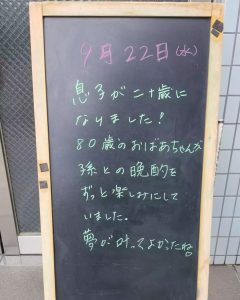 9月22日(水)
息子が二十歳に
なりました!
80歳のおばあちゃんが
孫との晩酌を
ずっと楽しみにして
いました。
夢が叶ってよかったね。